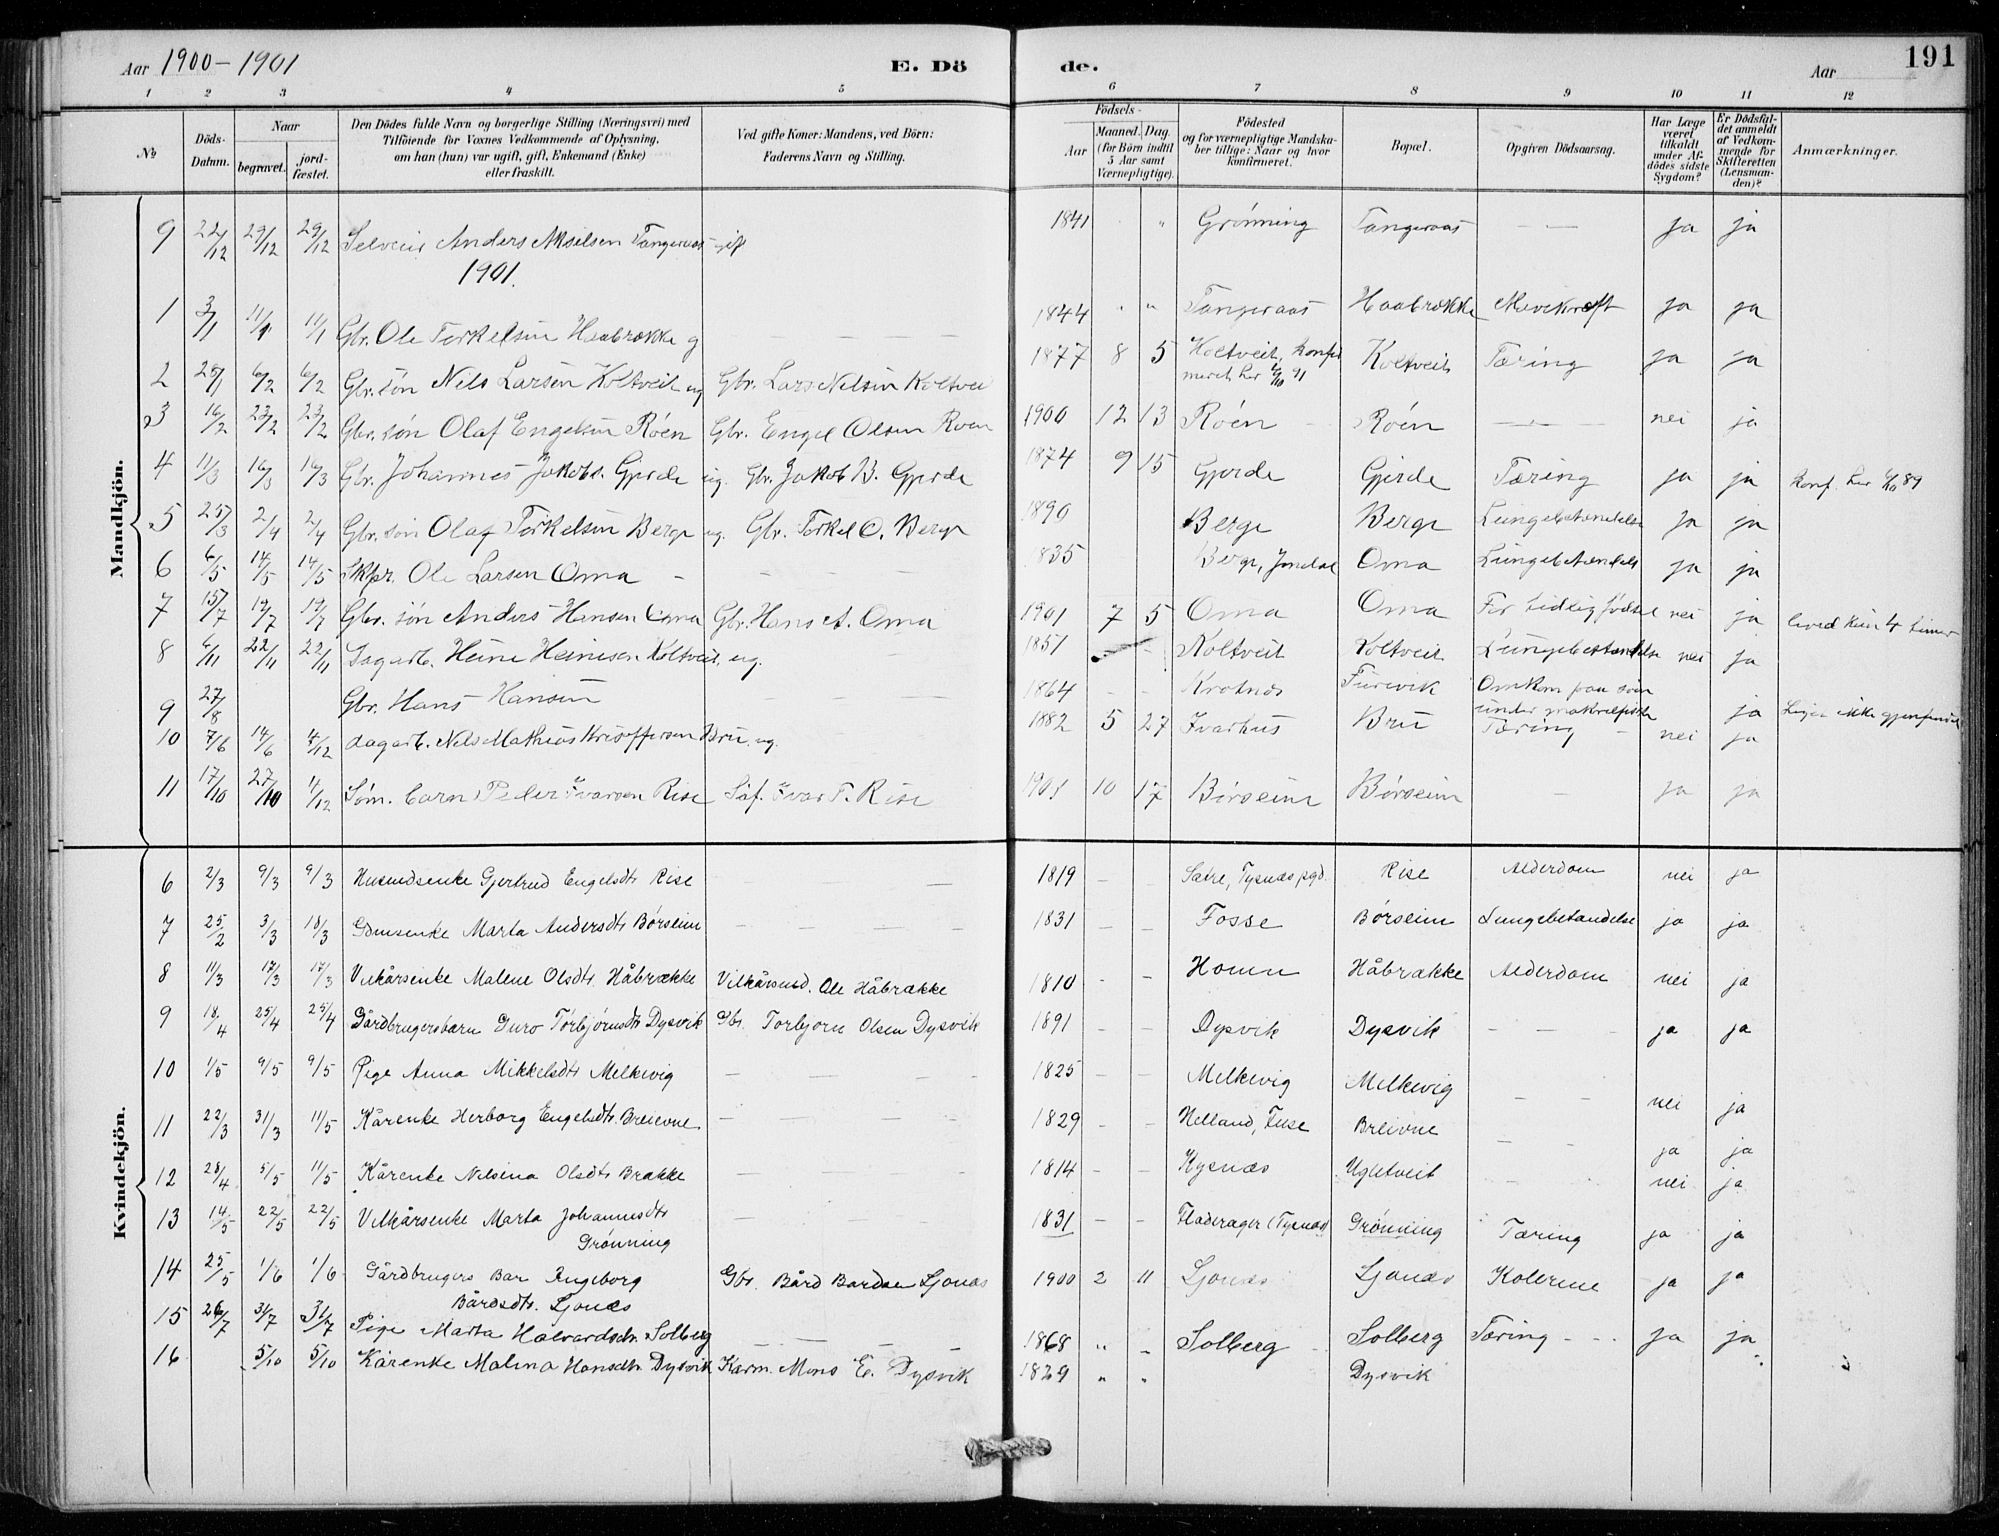 Aar 1900-1901 E. Dö de. Aar 191
1 2 3 4 5 6 7 8 9 10 11 12
№
Döds-Datum.
Naar begravet. jordfæstet.
Den Dödes fulde Navn og borgerlige Stilling (Næringsvei) med
Tilföiende for Voxnes Vedkommende af Oplysning,
om han (hun) var ugift, gift, Enkemand (Enke)
eller fraskilt.
Ved gifte Koner: Mandens, ved Börn:
Faderens Navn og Stilling.
Födsels-
Aar Maaned. Dag.
(for Börn indtil
5 Aar samt
Værnepligtige).
Födested
og for værnepligtige Mandska-
ber tillige: Naar og hvor
konfirmeret.
Bopæl.
Opgiven Dödsaarsag.
Har Læge
været
tilkaldt
under Af-
dödes sidste
Sygdom?
Er Dödsfal-
det anmeldt
af Vedkom-
mende for
Skifteretten
(Lensman-
den)?
Anmærkninger.
Mandkjön.
9 22/12 29/12 29/12 Selveier Anders Akselsen Tangeraas gif 1841 " Grønning Tangeraas — — ja ja
1901.
1 3/1 11/1 11/1 Gbr. Ole Torkelsen Haabrække g — — — 1844 " " Tangeraas Haabrække Mavekræft ja ja
2 25/1 6/2 6/2 Gbr. søn Nils Larsen Koltveit ug Gbr. Lars Nelsen Koltvei 1877 8 5 Koltveit, konfir meret her 91 Koltveit Tæring ja ja
3 16/2 23/2 23/2 Gbr. søn Olaf Engelsen Røen Gbr. Engel Olsen Røen 1900 12 13 Røen — Røen — — nei ja
4 11/3 16/3 16/3 Gbr. Johannes Jakobs. Gjerde ug. Gbr. Jakob B. Gjerde 1874 9 15 Gjerde Gjerde Tæring ja ja Konf. her 89
5 25/3 2/4 2/4 Gbr. søn Olaf Torkelsen Berge ug. Gbr. Torkel O. Berge 1890 Berge Berge Lungebetændelse ja ja
6 6/5 14/5 14/5 Skpr. Ole Larsen Oma — — — — 1835 Berge, Jondal Oma Lungebetændels ja ja
7 15/7 19/7 19/7 Gbr. søn Anders Hansen Oma Gbr. Hans A. Oma 1901 7 5 Oma Oma For tidlig fødsel nei ja leved kun 4 timer
8 6/11 22/11 22/11 Dagarb. Heine Heinesen Koltveit, ug. — — 1851 — Koltveit Koltveit Lungebetændelse nei ja
9 27/8 Gbr. Hans Hansen — — — 1864 - - Krotnes Furevik Omkom paa søen under makrelfiske ja Liget ikke gjenfundet
10 7/6 14/6 4/12 dagarb. Nels Mathias Kristoffersen Bru, ug. 1882 5 27 Ivarhus Bru Tæring — nei ja
11 17/10 27/10 4/12 Søm. barn Peder Ivarsen Rise Ivar T. Rise 1901 10 17 Børseim Børseim — ja ja
Kvindekjön.
6 2/3 9/3 9/3 Husmdsenke Gjertrud Engelsdtr Rise — — — 1819 — — Sætre, Tysnæs pgd. Rise Alderdom nei ja
7 25/2 3/3 18/3 Gdmsenke Marta Andersdtr Børseim — — — — 1831 — — Fosse Børseim Lungebetændelse ja ja
8 11/3 17/3 17/3 Vilkårsenke Malene Olsdtr. Håbrække Vilkårsmd. Ole Håbrække 1810 - - Håbrække Alderdom nei ja
9 18/4 25/4 25/4 Gårdbrugersbarn Guro Torbjørnsdtr Dysvik Gbr. Torbjørn Olsen Dysvik 1891 - - Dysvik Dysvik — — ja ja
10 1/5 9/5 9/5 Pige Anna Mikkelsdtr Melkevig — — — 1825 — — Melkevig Melkevig — — nei ja
11 22/3 31/3 11/5 Kårenke Herborg Engelsdtr. Breievne — — — 1829 — — Helland, Fuse Breivne — — ja ja
12 28/4 5/5 11/5 Kårenke Nelsina Olsdtr Brække — — — 1814 — — Kysnæs Ugletveit — — nei ja
13 14/5 22/5 22/5 Vilkårsenke Marta Johannesdtr Grønning — 1831 — — Fladerager (Tysnæs) Grønning Tæring ja ja
14 25/5 1/6 1/6 Gårdbrugers Bar Ingeborg Bårdsdtr. Ljonæs Gbr. Bård Bardsen Ljonæs 1900 2 11 Ljonæs Ljonæs Kolerine ja ja
15 26/7 31/7 31/7 Pige Marta Halvardsdtr. Solberg — — — 1868 " - Solberg Solberg Tæring - - - ja ja
16 5/10 5/10 Kårenke Malina Hansdtr. Dysvik Kårm. Mons E. Dysvik 1829 " " Dysvik